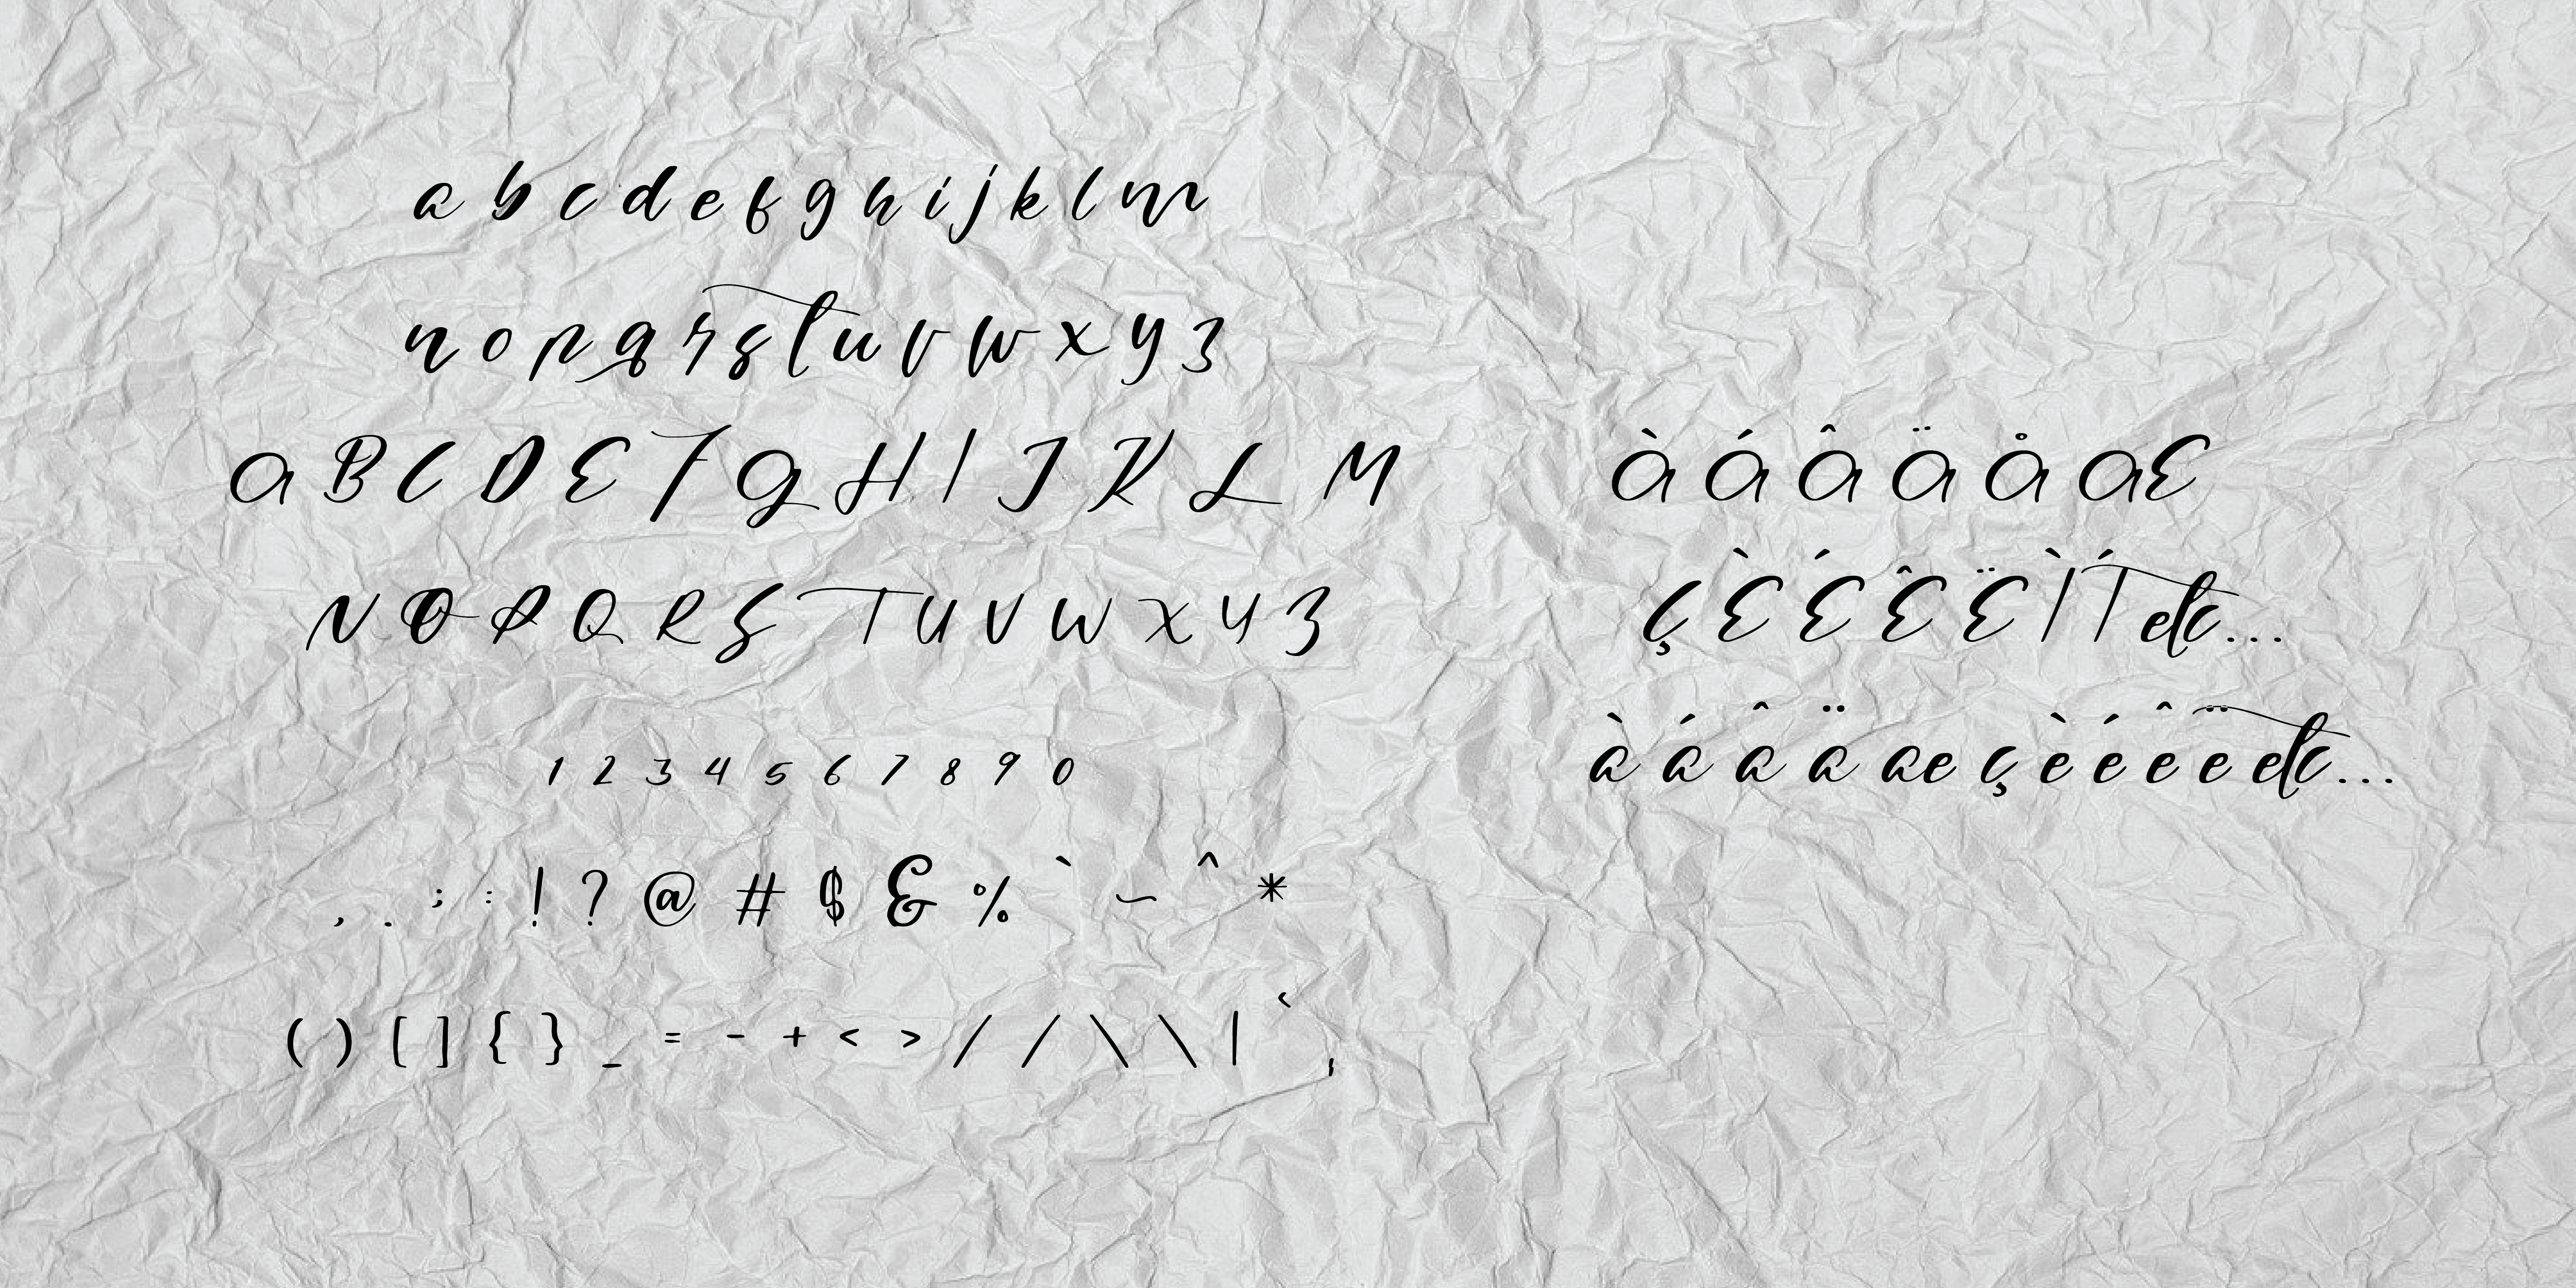 a b c d e f g h i j k l m
n o p q r s t u v w x y z
A B C D E F G H I J K L M
N O P Q R S T U V W X Y Z
1 2 3 4 5 6 7 8 9 0
, . ; : ! ? @ # $ & % ` ~ ^ *
( ) [ ] { } _ = - + < > / / \ \ | ‘ ,
À Á Â Ä Å Æ
Ç È É Ê Ë Ì Í etc...
à á â ä æ ç è é ê ë etc...